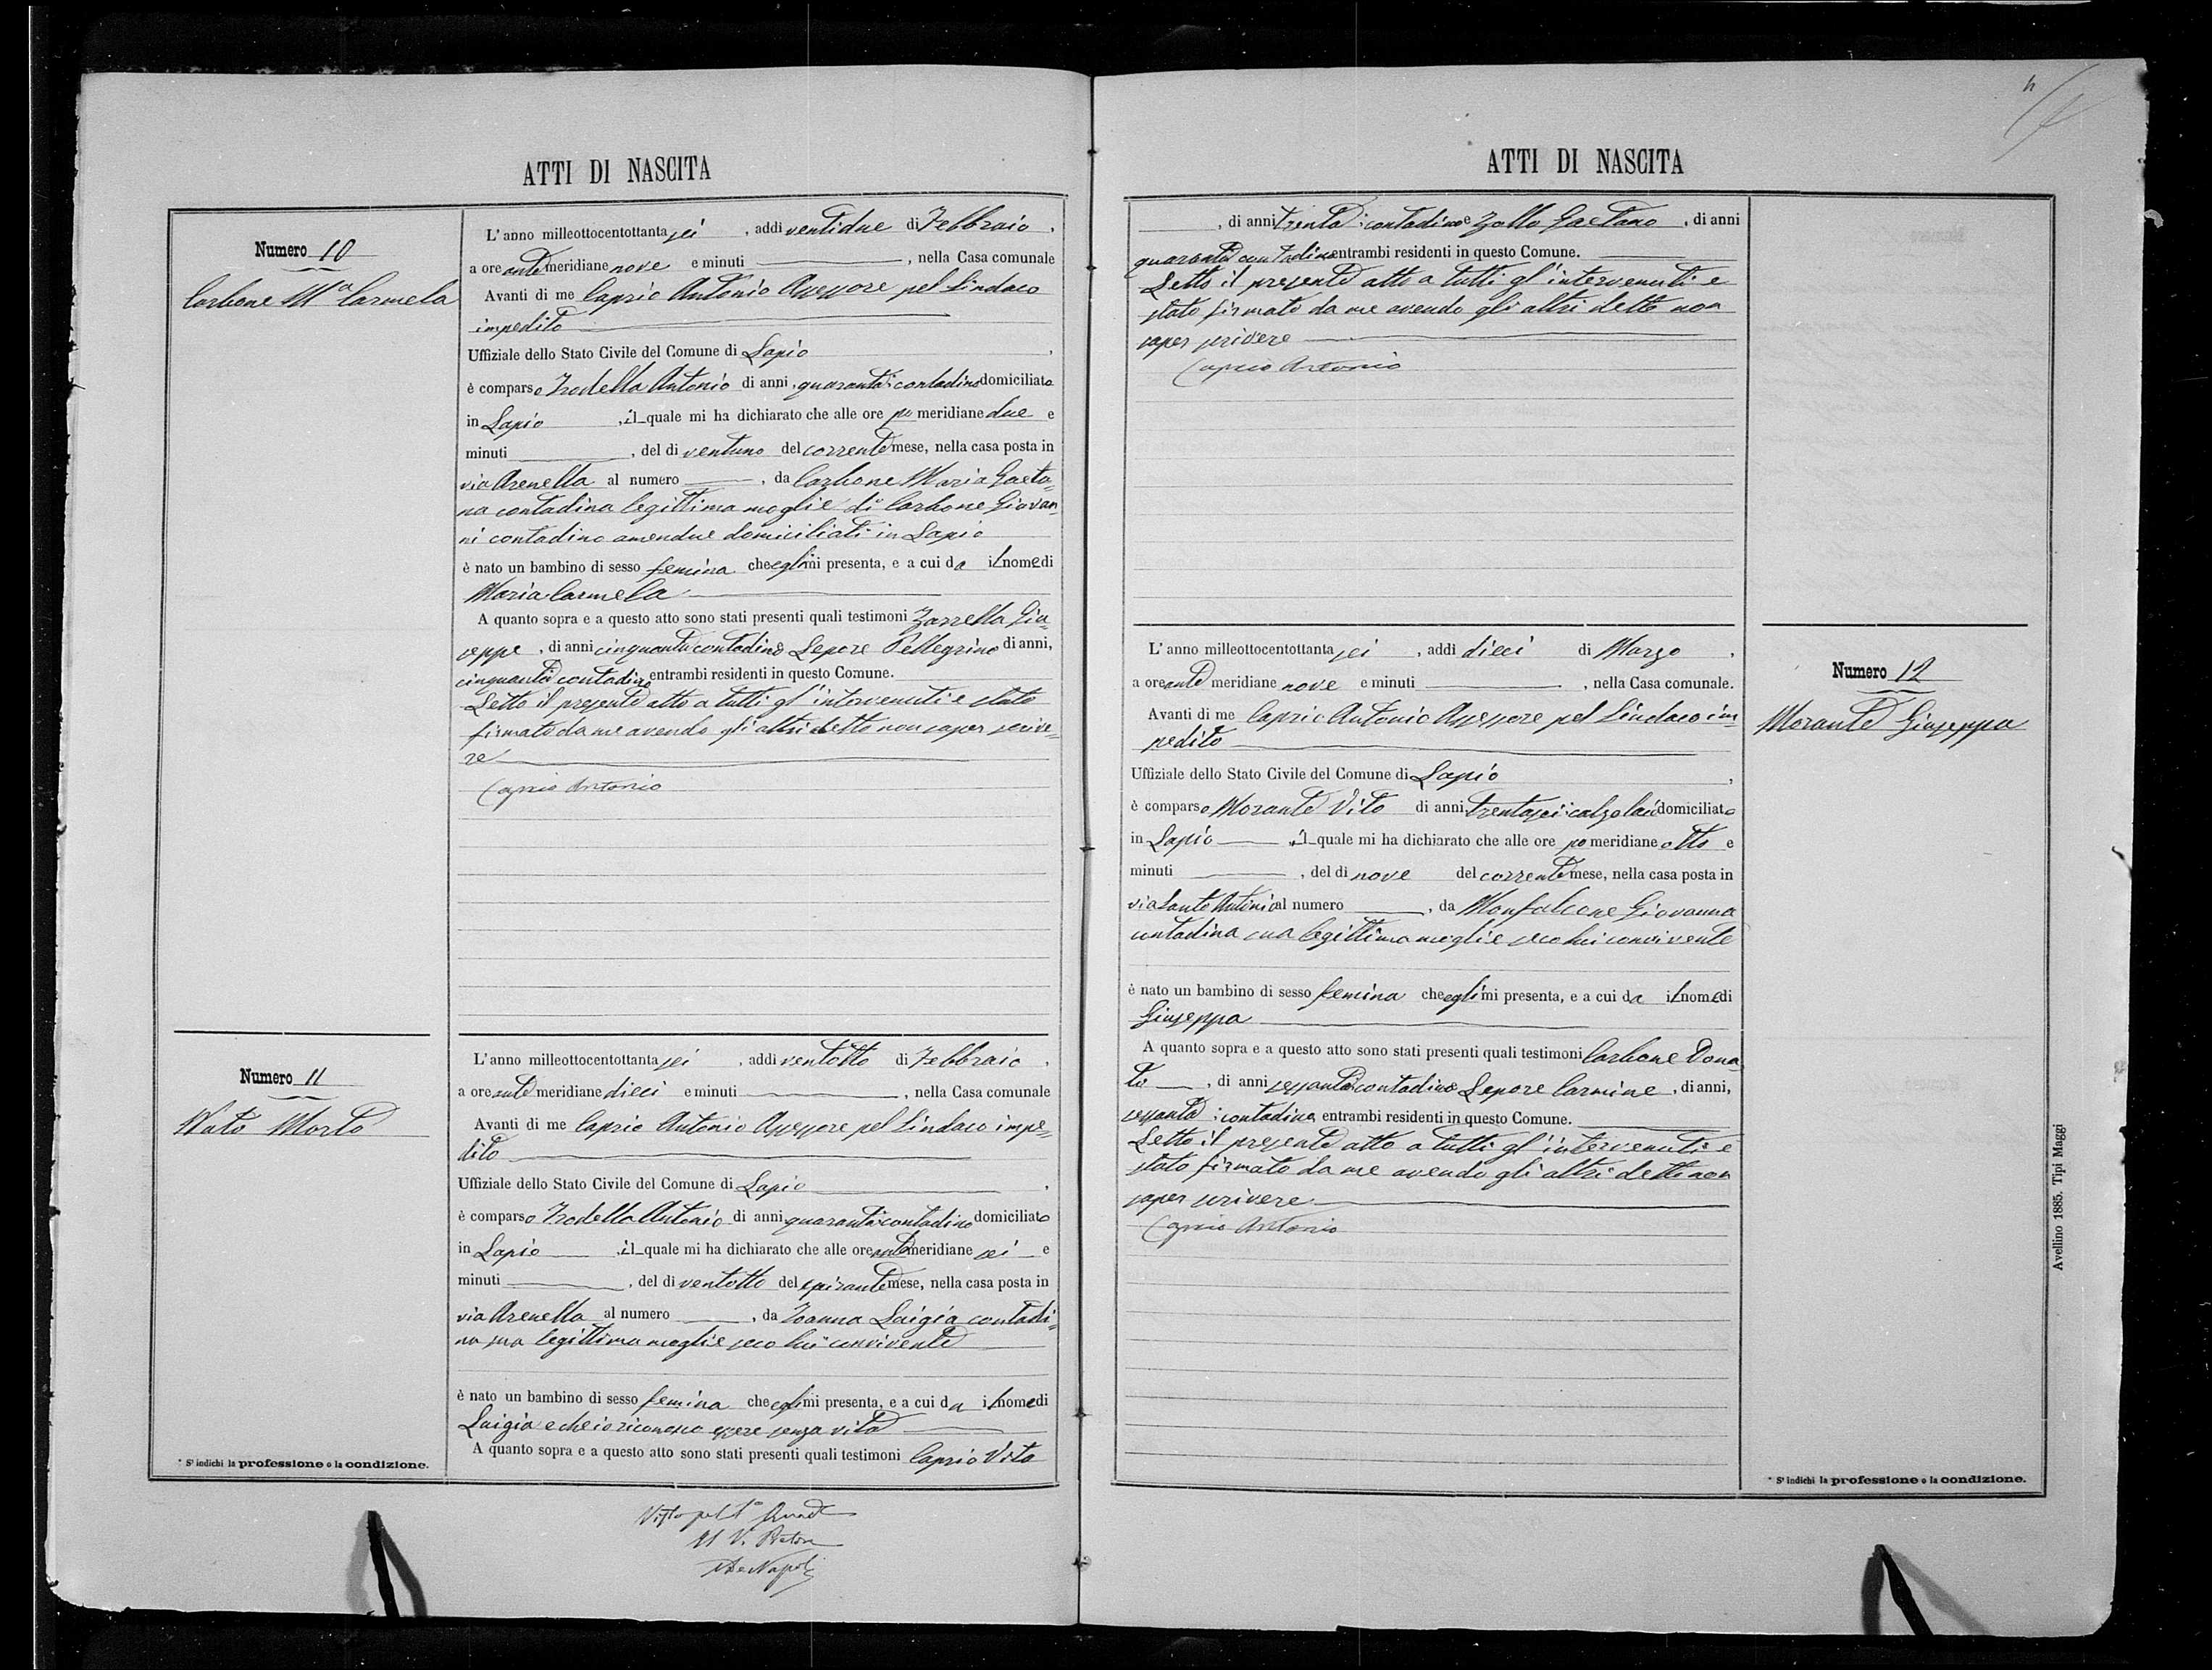 ATTI DI NASCITA
Numero 10
Carbone M.ª Carmela
L'anno milleottocentottanta sei , addi ventidue di Febbraio ,
a ore ante meridiane nove e minuti , nella Casa comunale
Avanti di me Caprio Antonio Assessore pel Sindaco
impedito
Uffiziale dello Stato Civile del Comune di Lapio ,
è comparso Trodella Antonio di anni , quaranta contadino domiciliato
in Lapio , il quale mi ha dichiarato che alle ore po meridiane due e
minuti , del di ventuno del corrente mese, nella casa posta in
via Arenella al numero , da Carbone Maria Gaeta-
na contadina legittima moglie di Carbone Giovan-
ni contadino amendue domiciliati in Lapio
è nato un bambino di sesso femina che egli mi presenta, e a cui da il nome di
Maria Carmela
A quanto sopra e a questo atto sono stati presenti quali testimoni Zarrella Giu-
seppe , di anni cinquanta contadino e Lepore Pellegrino di anni,
cinquanta contadino entrambi residenti in questo Comune.
Letto il presente atto a tutti gl'intervenuti e stato
firmato da me avendo gli altri detto non saper scrive-
re
Caprio Antonio
Numero 11
Nato Morto
L'anno milleottocentottanta sei , addi ventotto di Febbraio ,
a ore ante meridiane dieci e minuti , nella Casa comunale
Avanti di me Caprio Antonio Assessore pel Sindaco impe-
dito
Uffiziale dello Stato Civile del Comune di Lapio ,
è comparso Trodella Antonio di anni quaranta contadino domiciliato
in Lapio , il quale mi ha dichiarato che alle ore ante meridiane sei e
minuti , del di ventotto del spirante mese, nella casa posta in
via Arenella al numero , da Ioanna Luigia contadi-
na sua legittima moglie seco lui convivente
è nato un bambino di sesso femina che egli mi presenta, e a cui da il nome di
Luigia e che io riconosco essere senza vita
A quanto sopra e a questo atto sono stati presenti quali testimoni Caprio Vito
* Si indichi la professione o la condizione.
Visto pel 1°
Il V. Pretore
De Napoli
ATTI DI NASCITA
, di anni trenta contadino e Zollo Gaetano , di anni
quaranta contadino entrambi residenti in questo Comune.
Letto il presente atto a tutti gl'intervenuti e
stato firmato da me avendo gli altri detto non
saper scrivere
Caprio Antonio
L'anno milleottocentottanta sei , addi dieci di Marzo ,
a ore ante meridiane nove e minuti , nella Casa comunale.
Avanti di me Caprio Antonio Assessore pel Sindaco im-
pedito
Uffiziale dello Stato Civile del Comune di Lapio ,
è comparso Morante Vito di anni trentasei calzolaio domiciliato
in Lapio , il quale mi ha dichiarato che alle ore po meridiane otto e
minuti , del di nove del corrente mese, nella casa posta in
via Santo Antonio al numero , da Monfalcone Giovanna
contadina sua legittima moglie seco lui convivente
è nato un bambino di sesso femina che egli mi presenta, e a cui da il nome di
Giuseppa
A quanto sopra e a questo atto sono stati presenti quali testimoni Carbone Dona
to , di anni sessanta contadino e Lepore Carmine , di anni,
sessanta contadino entrambi residenti in questo Comune.
Letto il presente atto a tutti gl'intervenuti e
stato firmato da me avendo gli altri detto non
saper scrivere
Caprio Antonio
Numero 12
Morante Giuseppa
* Si indichi la professione o la condizione.
Avellino 1885. Tipi Maggi